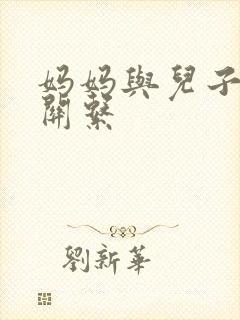 妈妈與兒子
關繫
劉新華